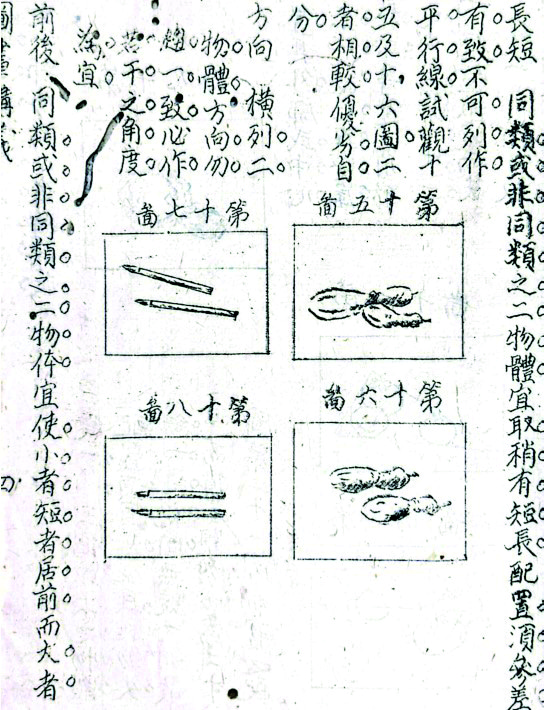 長短　同類或非同類之二物體宜取稍有短長配置須參差
有致不可列作
平行線試觀十
五及十六圖二
者相較優劣自
分
方向　橫列二
物體方向勿
趨一致必作
若干之角度
為宜
第十五啚
第十六啚
第十七啚
第十八啚
前後　同類或非同類之二物体宜使小者短者居前而大者